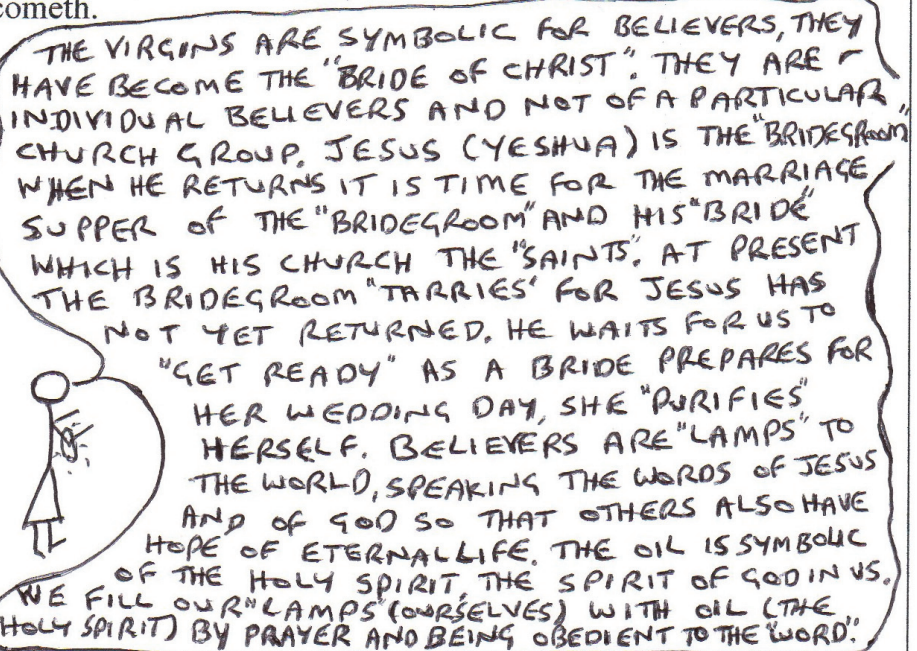 cometh.
THE VIRGINS ARE SYMBOLIC FOR BELIEVERS, THEY
HAVE BECOME THE "BRIDE OF CHRIST". THEY ARE
INDIVIDUAL BELIEVERS AND NOT OF A PARTICULAR
CHURCH GROUP. JESUS (YESHUA) IS THE "BRIDEGROOM"
WHEN HE RETURNS IT IS TIME FOR THE MARRIAGE
SUPPER OF THE "BRIDEGROOM" AND HIS "BRIDE"
WHICH IS HIS CHURCH THE "SAINTS". AT PRESENT
THE BRIDEGROOM "TARRIES" FOR JESUS HAS
NOT YET RETURNED. HE WAITS FOR US TO
"GET READY" AS A BRIDE PREPARES FOR
HER WEDDING DAY, SHE "PURIFIES"
HERSELF. BELIEVERS ARE "LAMPS" TO
THE WORLD, SPEAKING THE WORDS OF JESUS
AND OF GOD SO THAT OTHERS ALSO HAVE
HOPE OF ETERNAL LIFE. THE OIL IS SYMBOLIC
OF THE HOLY SPIRIT, THE SPIRIT OF GOD IN US.
WE FILL OUR "LAMPS" (OURSELVES) WITH OIL (THE
HOLY SPIRIT) BY PRAYER AND BEING OBEDIENT TO THE "WORD".